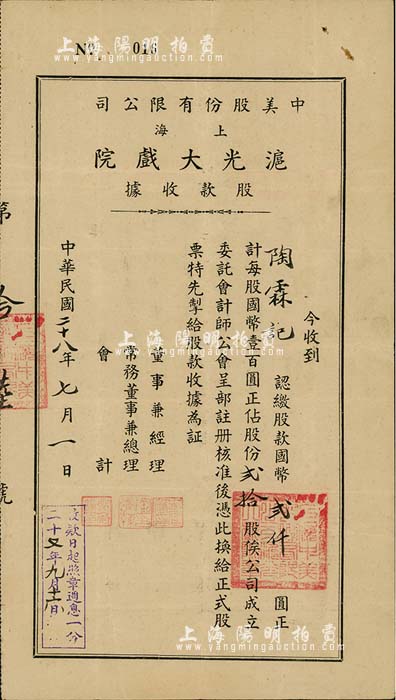 上海陽明拍賣
www.yangmingauction.com
No 016
中美股份有限公司
上海
滬光大戲院
股款收據
今收到
陶霖記 認繳股款國幣 貳仟 圓正
計每股國幣壹百圓正佔股份 貳拾 股俟公司成立
委託會計師公會呈部註册核准後憑此換給正式股
票特先掣給股款收據為証
董事兼經理
常務董事兼總理
會計
中華民國二十八年七月一日
上海陽明拍賣
www.yangmingauction.com
款日起照章週息一分
二十 年九月十 日
第
號
上海陽明拍賣
www.yangmingauction.com